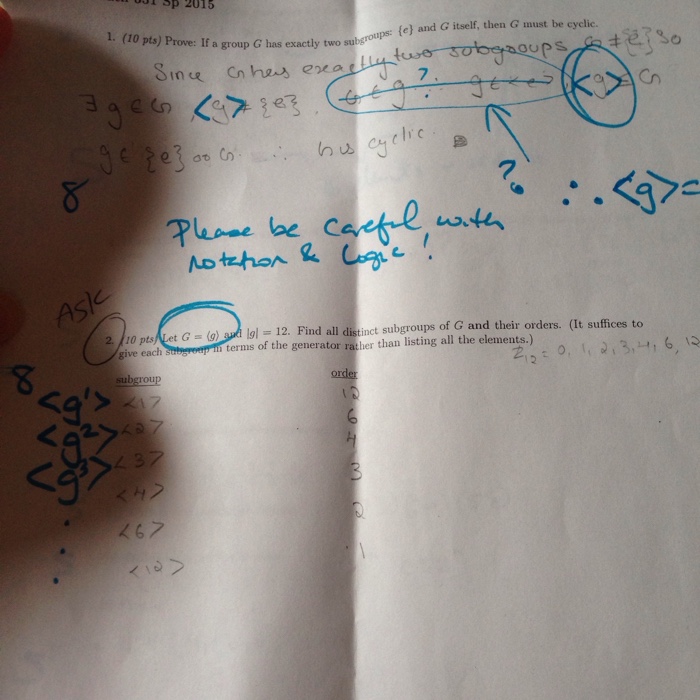 Sp 2015
1. (10 pts) Prove: If a group G has exactly two subgroups: {e} and G itself, then G must be cyclic.
Since G has exactly two subgroups G ≠ {e} so
∃ g ∈ G <g> ≠ {e}. ? <g> = G
g ∈ {e} or G ∴ is cyclic.
8
? ∴ <g> =
Please be careful with
notation & logic!
Ask
2. (10 pts) Let G = ⟨g⟩ and |g| = 12. Find all distinct subgroups of G and their orders. (It suffices to
give each subgroup in terms of the generator rather than listing all the elements.)
Z12 = 0, 1, 2, 3, 4, 6, 12
8
subgroup order
<g¹> <1> 12
<g²> <2> 6
<g³> <3> 4
<4> 3
<6> 2
<12> 1